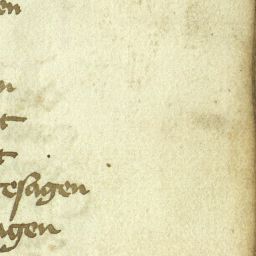 en
n
t
t
resagen
agen